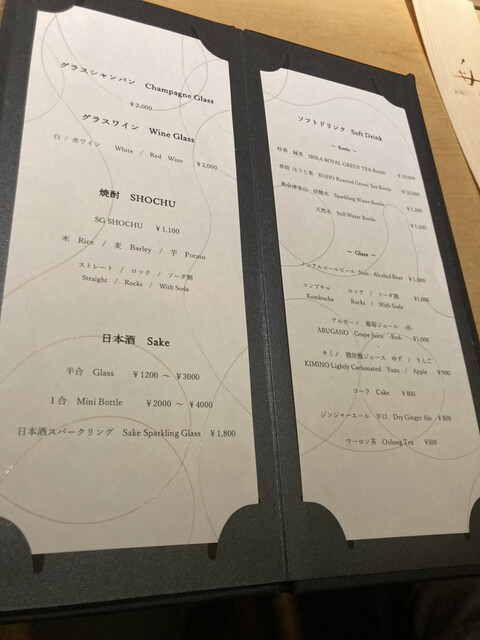 グラスシャンパン Champagne Glass
¥2,000
グラスワイン Wine Glass
白 / 赤ワイン White / Red Wine ¥2,000
焼酎 SHOCHU
SG SHOCHU ¥1,100
米 Rice / 麦 Barley / 芋 Potato
ストレート / ロック / ソーダ割
Straight / Rocks / With Soda
日本酒 Sake
半合 Glass ¥1200 ～ ¥3000
1合 Mini Bottle ¥2000 ～ ¥4000
日本酒スパークリング Sake Sparkling Glass ¥1,800
ソフトドリンク Soft Drink
～ Bottle ～
緑茶 IBIKA ROYAL GREEN TEA Bottle ¥10,000
香焙 ほうじ茶 KOHO Roasted Green Tea Bottle ¥10,000
炭酸水 Sparkling Water Bottle ¥1,200
天然水 Still Water Bottle ¥1,100
～ Glass ～
ノンアルコールビール Non - Alcohol Beer ¥1,000
コンブチャ ロック / ソーダ割
Kombucha Rocks / With Soda ¥1,000
アルガーノ 葡萄ジュース -赤-
ARUGANO Grape Juice -Red- ¥1,000
キミノ 微炭酸ジュース ゆず / りんご
KIMINO Lightly Carbonated Yuzu / Apple ¥900
コーラ Coke ¥800
ジンジャーエール 辛口 Dry Ginger Ale ¥800
ウーロン茶 Oolong Tea ¥500